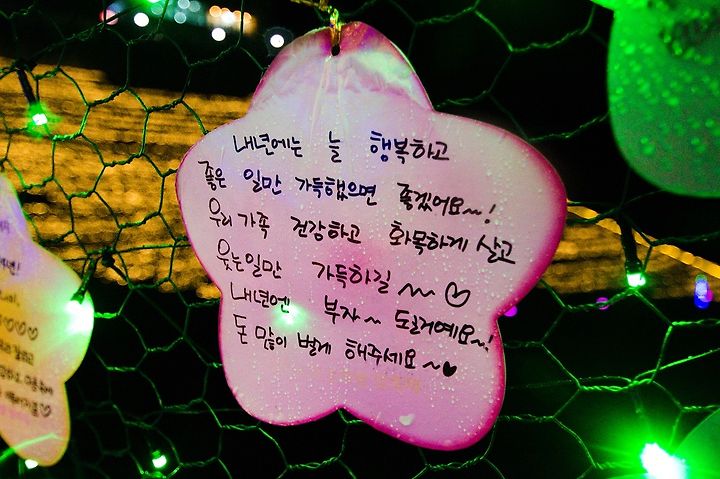 내년에는 늘 행복하고
좋은 일만 가득했으면 좋겠어요~!
우리가족 건강하고 화목하게 살고
웃는일만 가득하길 ~ ♡
내년엔 부자~ 될거예요~!
돈 많이 벌게 해주세요~♥